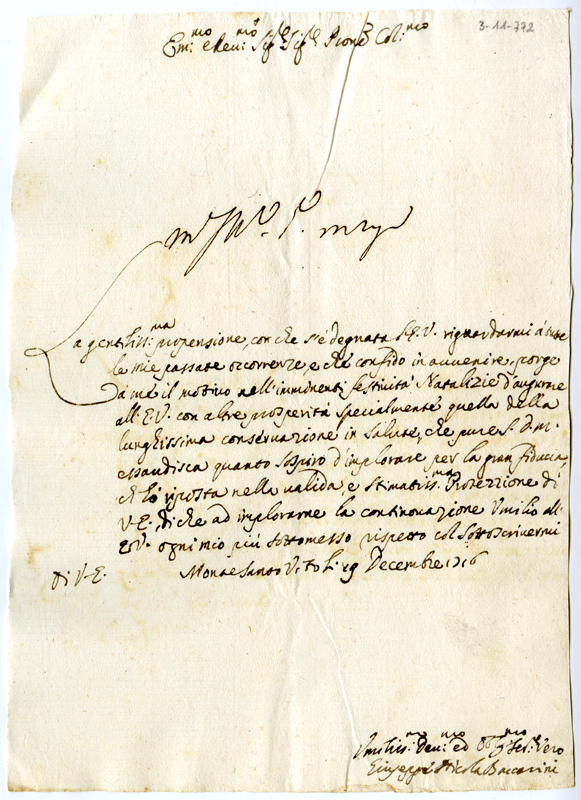 3-11-772
Em:mo e Rev:mo Sig.r Sig.r Prone Col:mo
La gentiliss:ma propensione, con che s'è degnata l'E.V. riguardarmi à tutte
le mie passate occorrenze, e che confido in avvenire, porge
à me il motivo nell'imminenti festività Natalizie d'augurare
all'E.V. con altre prosperità specialmente quella della
lunghissima conservazione in salute, che pure S. D. M.
essaudisca quanto sospiro d'implorare per la gran fiducia,
ch'hò riposta nella valida, e stimatiss:ma Protezzione di
V.E., di che ad implorarne la continovazione Umilio all'
E.V. ogni mio più sottomesso rispetto col sottoscrivermi
Di V.E.
Monte Santo Vito li 19 Decembre 1716
Umiliss:mo Dev:mo ed Obblig:mo Ser: Vero
Giuseppe Nicola Baccarini